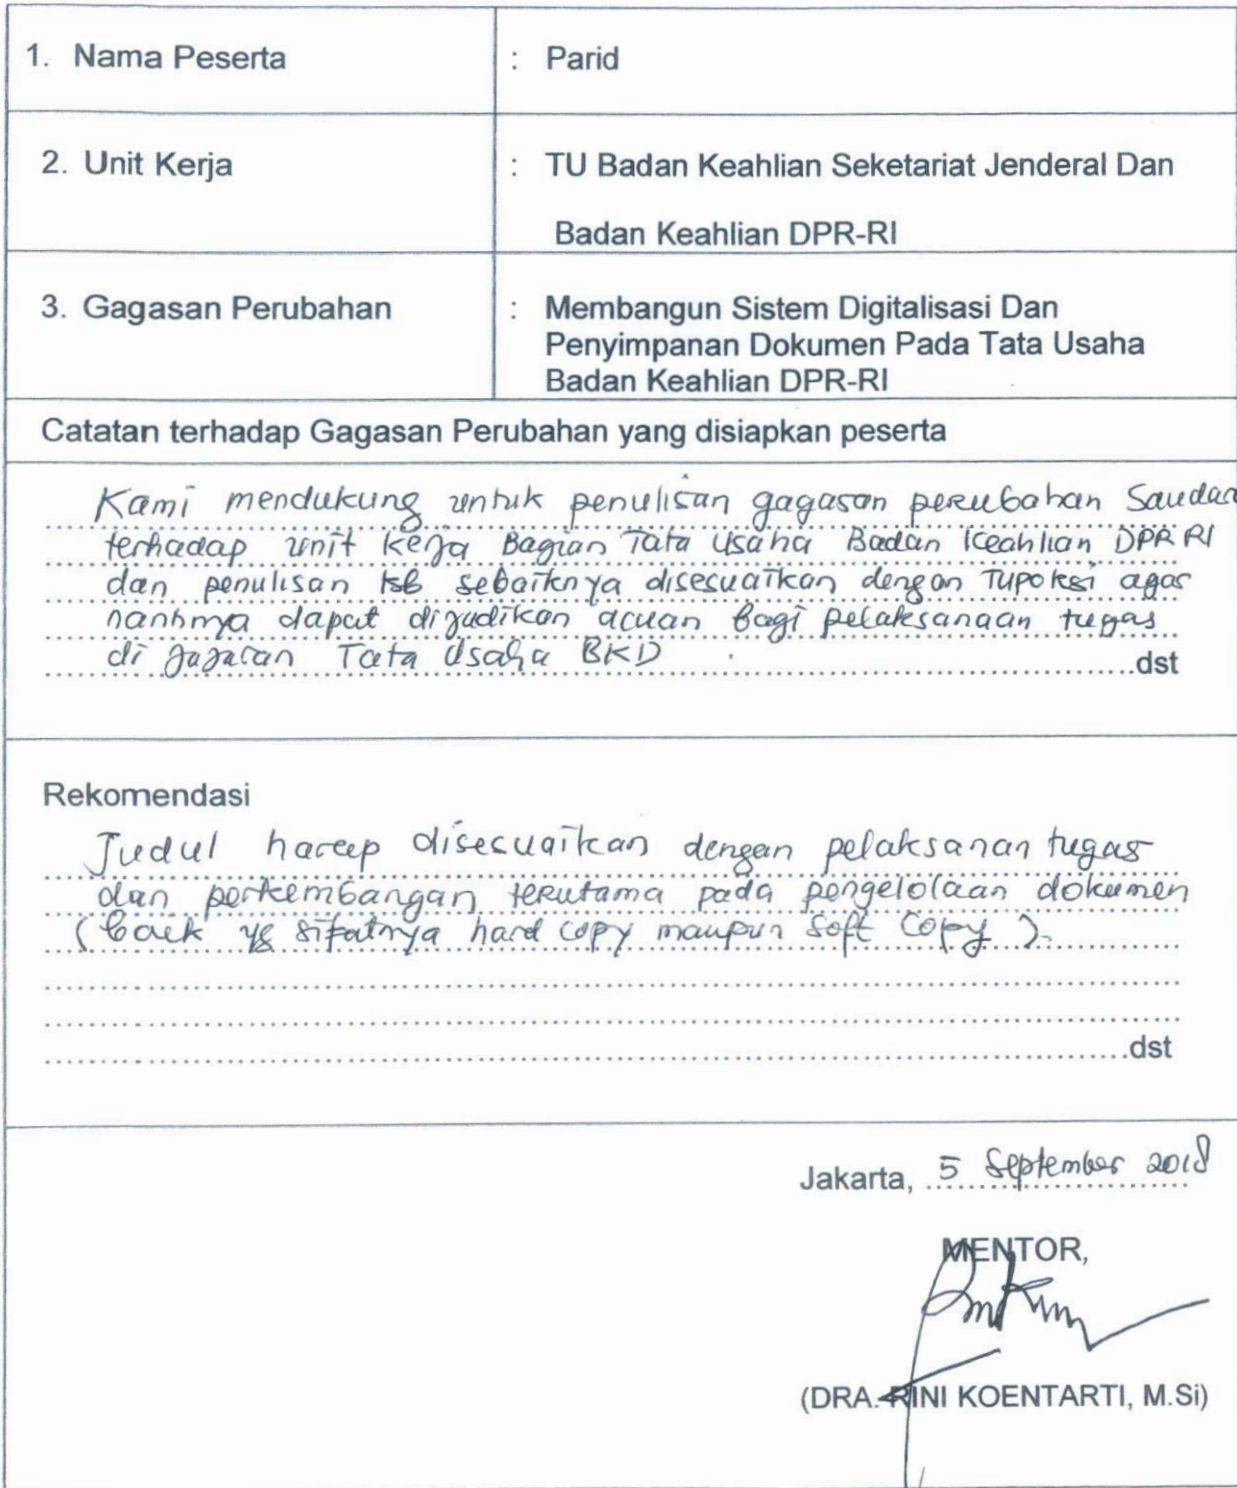 1. Nama Peserta : Parid
2. Unit Kerja : TU Badan Keahlian Seketariat Jenderal Dan
Badan Keahlian DPR-RI
3. Gagasan Perubahan : Membangun Sistem Digitalisasi Dan
Penyimpanan Dokumen Pada Tata Usaha
Badan Keahlian DPR-RI
Catatan terhadap Gagasan Perubahan yang disiapkan peserta
Kami mendukung untuk penulisan gagasan perubahan Saudara
terhadap unit kerja Bagian Tata Usaha Badan Keahlian DPR RI
dan penulisan tsb sebaiknya disesuaikan dengan Tupoksi agar
nantinya dapat dijadikan acuan bagi pelaksanaan tugas
di jajaran Tata Usaha BKD .
dst
Rekomendasi
Judul harap disesuaikan dengan pelaksanan tugas
dan perkembangan terutama pada pengelolaan dokumen
(baik yg sifatnya hard copy maupun soft copy ).
dst
Jakarta, 5 September 2018
MENTOR,
(DRA. RINI KOENTARTI, M.Si)